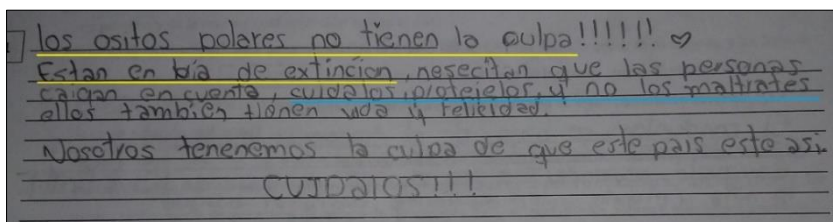 los ositos polares no tienen la culpa!!!!!! ♡
Estan en bia de extincion, nesecitan que las personas
caigan en cuenta, cuidalos, protejelos, y no los maltrates
ellos tambien tienen vida y felicidad.
Nosotros tenenemos la culpa de que este pais este asi.
CUIDALOS!!!